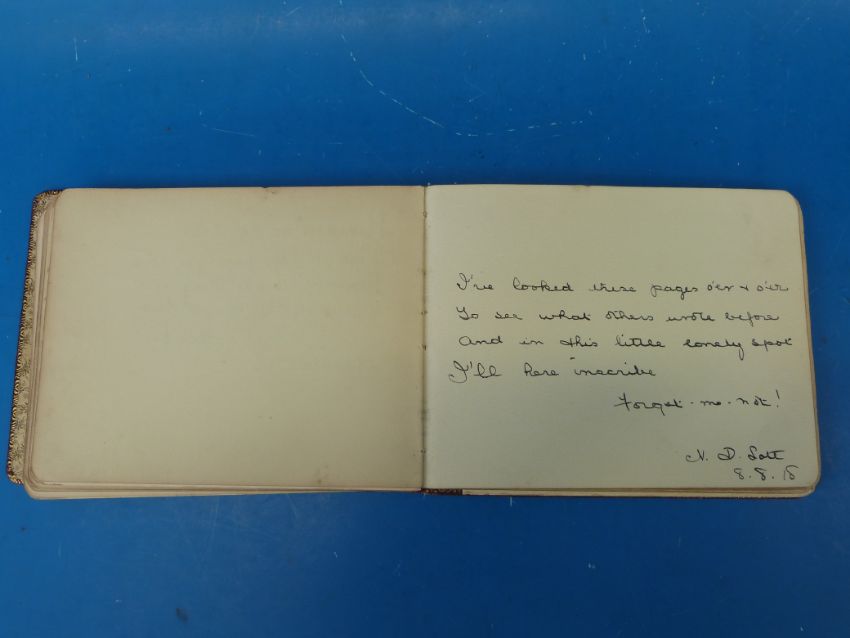 I've looked these pages o'er & o'er
To see what others wrote before
And in this little lonely spot
I'll here inscribe
Forget-me-not!
N. D. Lott
8.8.18